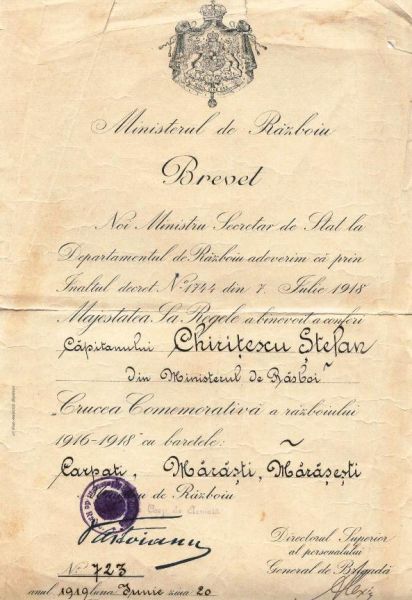 Ministerul de Războiu
Brevet
Noi Ministru Secretar de Stat la
Departamentul de Războiu adeverim că prin
Inaltul decret No 1744 din 7. Iulie 1918
Majestatea Sa Regele a binevoit a conferi
Căpitanului Chirițescu Ștefan
din Ministerul de Răsboi
„Crucea Comemorativă a războiului
1916-1918” cu baretele:
Carpați, Mărăști, Mărășești
de Războiu
Corp de Armată
Directorul Superior
al personalului
General de Brigadă
No 723
anul 1919 luna Iunie ziua 20